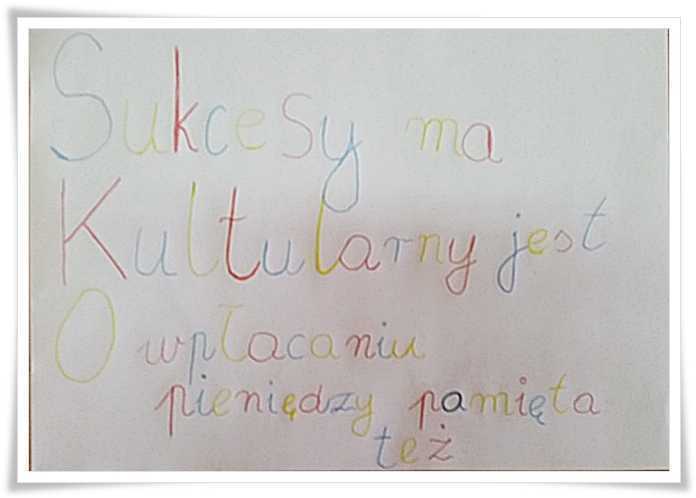 Sukcesy ma
Kultularny jest
O wpłacaniu
pieniędzy pamięta
też